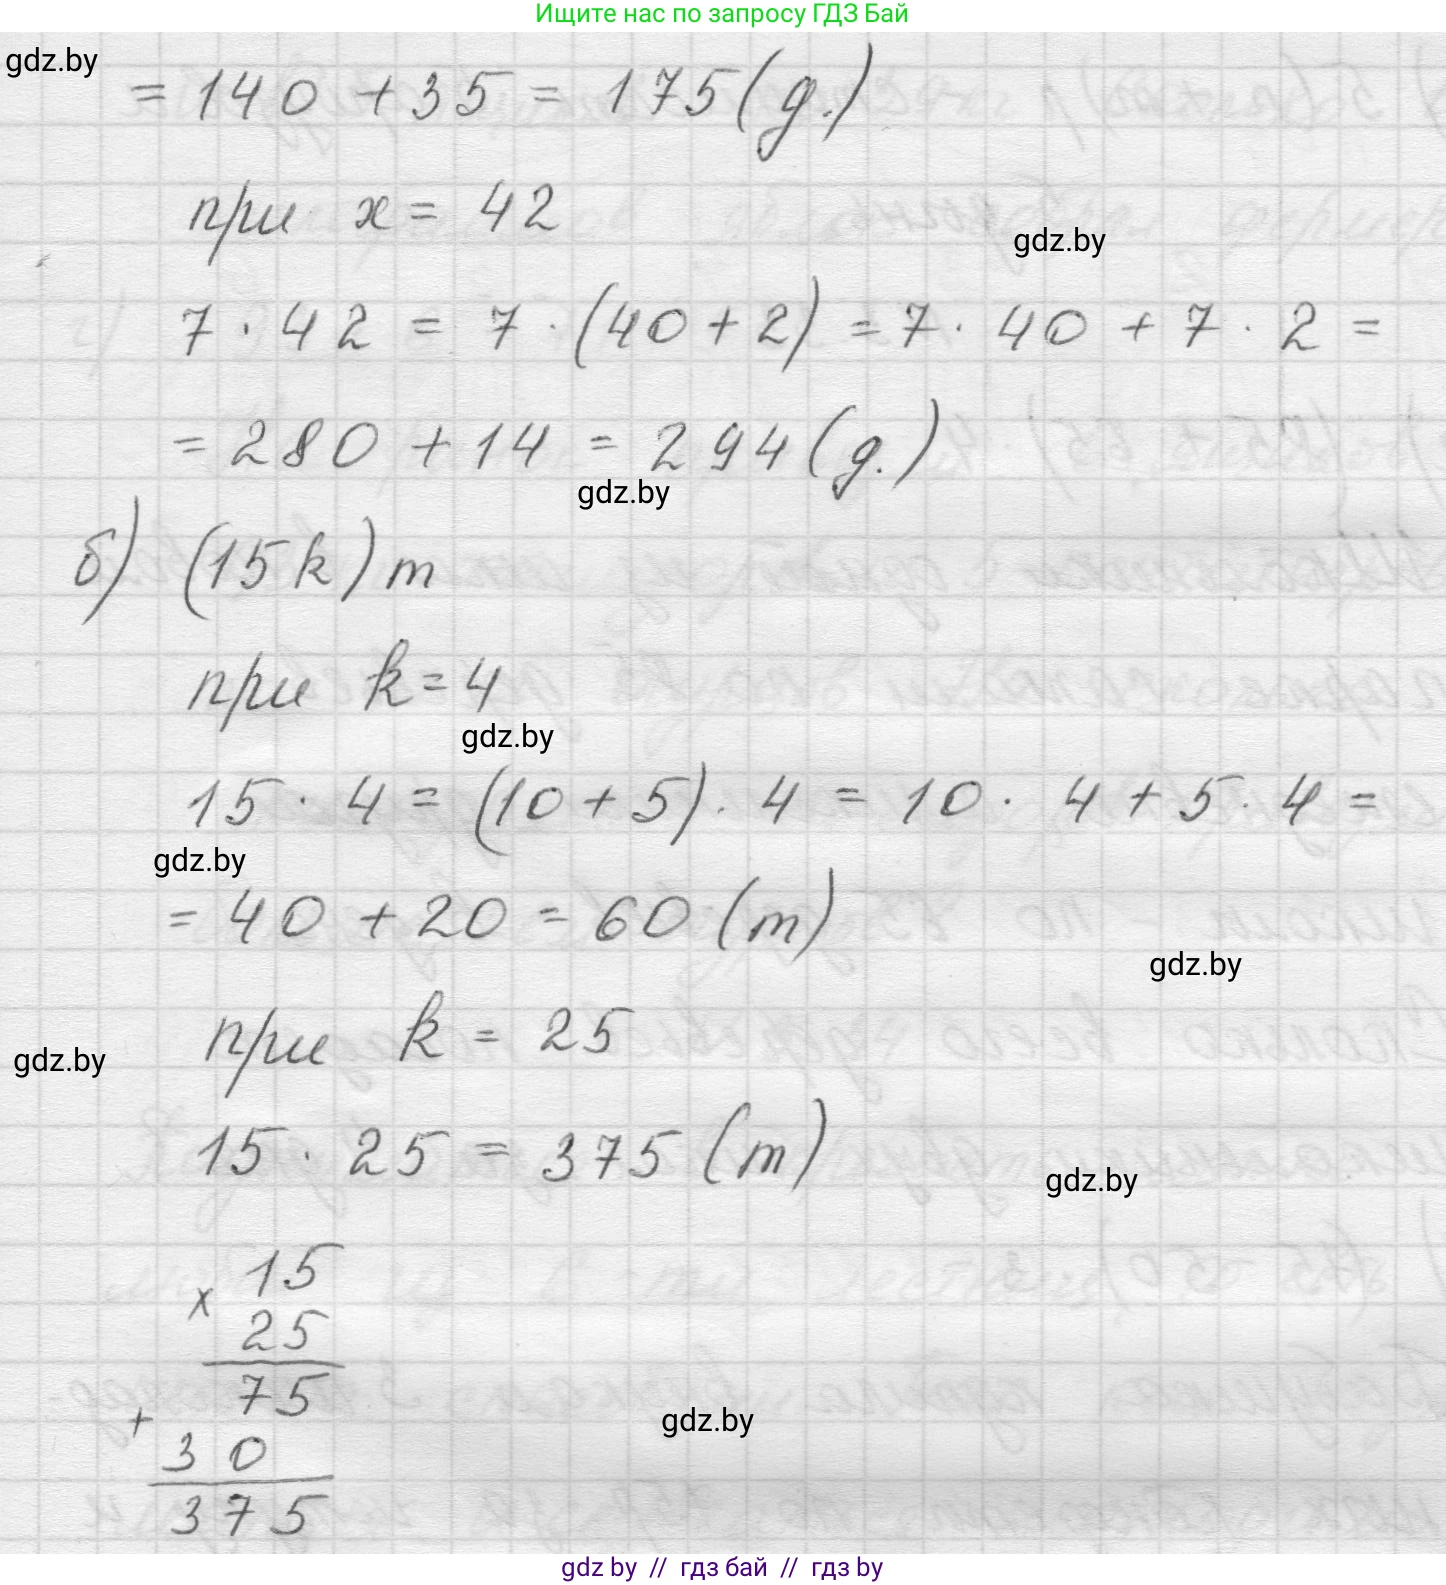 Ищите нас по запросу ГДЗ Бай
gdz.by
= 140 + 35 = 175 (д.)
при x = 42
gdz.by
7 · 42 = 7 · (40 + 2) = 7 · 40 + 7 · 2 =
= 280 + 14 = 294 (д.)
gdz.by
б) (15k) т
при k = 4
gdz.by
15 · 4 = (10 + 5) · 4 = 10 · 4 + 5 · 4 =
gdz.by
= 40 + 20 = 60 (т)
gdz.by
при k = 25
gdz.by
15 · 25 = 375 (т)
gdz.by
15
x
25
75
+
gdz.by
30
375
gdz by // гдз бай // гдз by